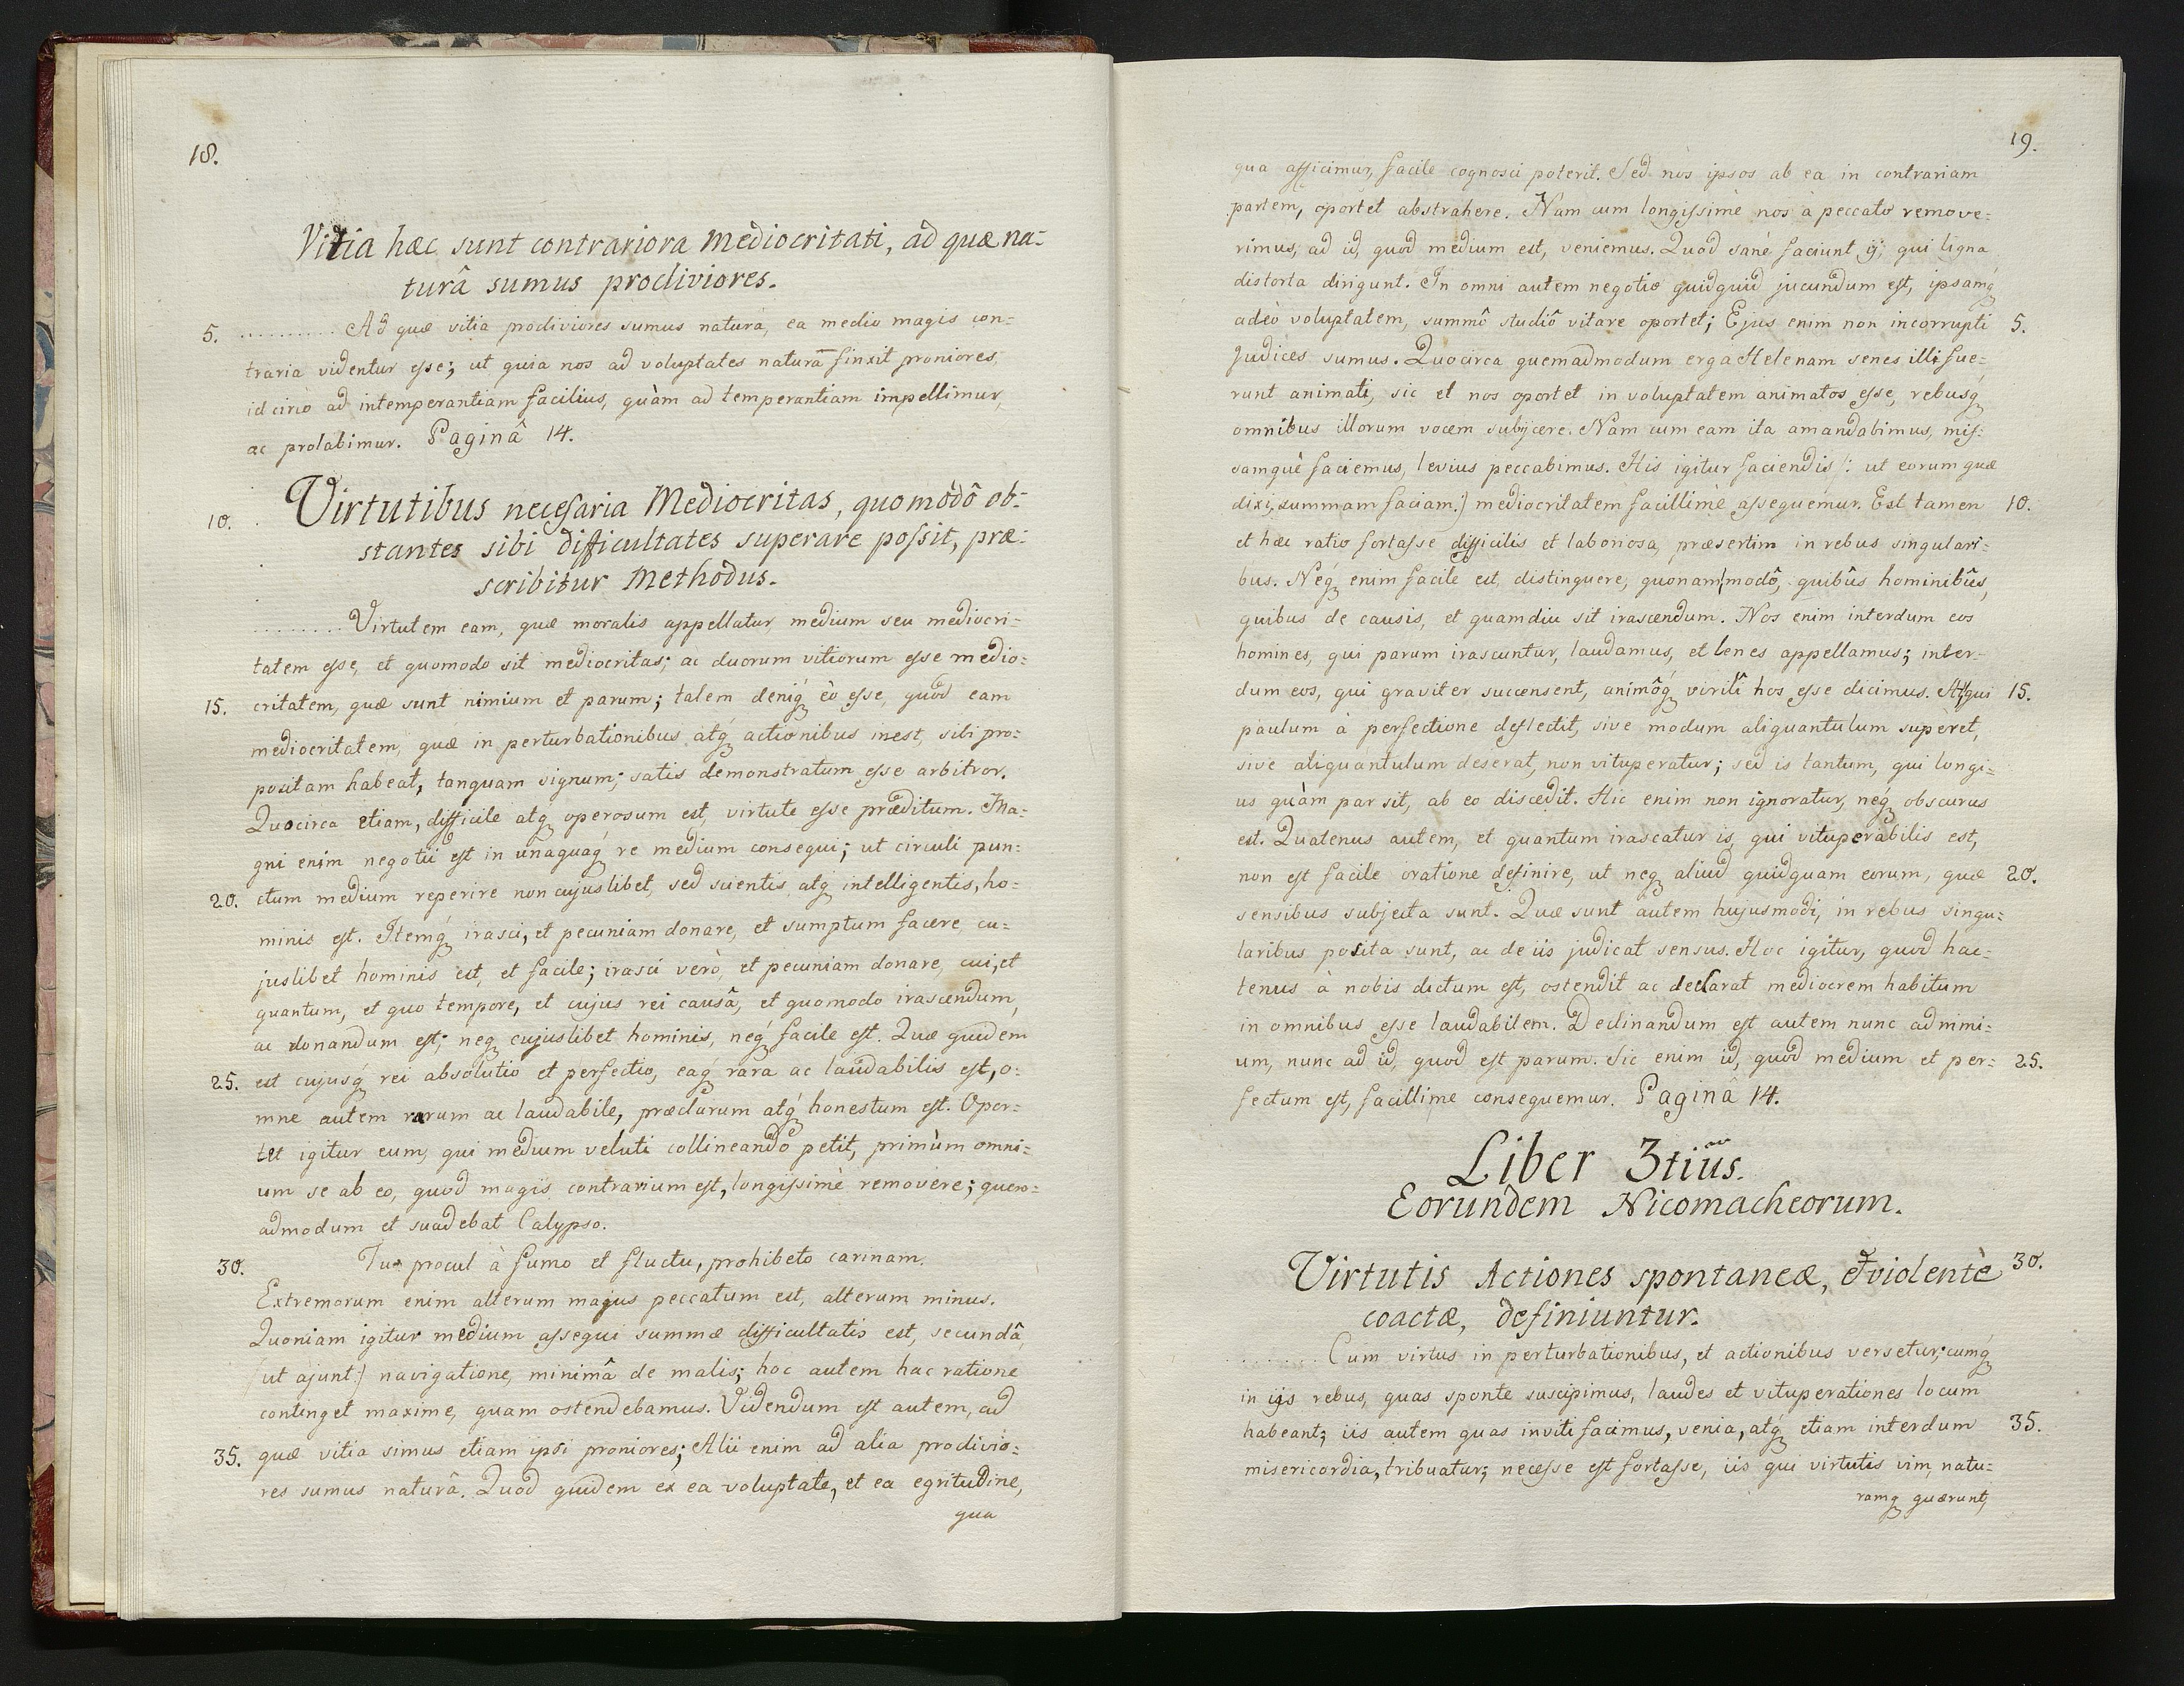 18.
Vitia hæc sunt contrariora mediocritati, ad quæ na=
turâ sumus procliviores.
5. ........... Ad quæ vitia procliviores sumus naturâ, ea medio magis con=
traria videntur esse; ut quia nos ad voluptates naturā finxit proniores,
idcirco ad intemperantiam facilius, quàm ad temperantiam impellimur,
ac prolabimur. Paginâ 14.
10. Virtutibus necessaria Mediocritas, quomodô ob=
stantes sibi difficultates superare possit, præ=
scribitur Methodus.
......... Virtutem eam, quæ moralis appellatur, medium seu mediocri=
tatem esse, et quomodo sit mediocritas; ac duorum vitiorum esse medio=
15. critatem, quæ sunt nimium et parum; talem deniq́ eò esse, quòd eam
mediocritatem, quæ in perturbationibus atq́ actionibus inest, sibi pro=
positam habeat, tanquam signum; satis demonstratum esse arbitror.
Quocirca etiam, difficile atq operosum est, virtute esse præditum. Ma=
gni enim negotii est in unaquaq́ re medium consequi; ut circuli pun=
20. ctum medium reperire non cujuslibet, sed scientis atq intelligentis, ho=
minis est. Itemq́ irasci, et pecuniam donare, et sumptum facere, cu=
juslibet hominis est, et facile; irasci verò, et pecuniam donare, cui, et
quantum, et quo tempore, et cujus rei causâ, et quomodo irascendum,
ac donandum est; neq cujuslibet hominis, neq́ facile est. Quæ quidem
25. est cujusq́ rei absolutio et perfectio, eaq́ rara ac laudabilis est, o=
mne autem rarum ac laudabile, præclarum atq́ honestum est. Opor=
tet igitur eum, qui medium veluti collineandô petit, primùm omni=
um se ab eo, quod magis contrarium est, longissimè removere; quem=
admodum et suadebat Calypso.
30. Tu procul à fumo et fluctu, prohibeto carinam.
Extremorum enim alterum majus peccatum est, alterum minus.
Quoniam igitur medium assequi summæ difficultatis est, secundâ,
(ut ajunt:) navigatione, minimâ de malis; hoc autem hac ratione
continget maxime, quam ostendebamus. Videndum est autem, ad
35. quæ vitia simus etiam ipsi proniores; Alii enim ad alia proclivio=
res sumus naturâ. Quod quidem ex ea voluptate, et ea egritudine,
qua
19.
qua afficimur, facile cognosci poterit. Sed nos ipsos ab ea in contrariam
partem, oportet abstrahere. Nam cum longissimè nos à peccato remove=
rimus, ad id, quod medium est, veniemus. Quod sanè faciunt ij, qui ligna
distorta dirigunt. In omni autem negotio quidquid jucundum est, ipsamq́
adeò voluptatem, summô studiô vitare oportet; Ejus enim non incorrupti 5.
Judices sumus. Quocirca quemadmodum erga Helenam senes illi fue=
runt animati, sic et nos oportet in voluptatem animatos esse, rebusq́
omnibus illorum vocem subijcere. Nam cum eam ita amandabimus, mis=
samquè faciemus, levius peccabimus. His igitur faciendis (: ut eorum quæ
dixi, summam faciam:) mediocritatem facillimè assequemur. Est tamen 10.
et hæc ratio fortasse difficilis et laboriosa, præsertim in rebus singulari=
bus. Neq́ enim facile est, distinguere, quonam modô, quibûs hominibûs,
quibus de causis, et quamdiu sit irascendum. Nos enim interdum eos
homines, qui parum irascuntur, laudamus, et lenes appellamus; inter=
dum eos, qui graviter succensent, animôq́ virili hos esse dicimus. Atqui 15.
paulum à perfectione deflectit, sive modum aliquantulum superet,
sive aliquantulum deserat, non vituperatur; sed is tantum, qui longi=
us quàm par sit, ab eo discedit. Hic enim non ignoratur, neq́ obscurus
est. Quatenus autem, et quantum irascatur is, qui vituperabilis est,
non est facile oratione definire, ut neq aliud quidquam eorum, quæ 20.
sensibus subjecta sunt. Quæ sunt autem hujusmodi, in rebus singu=
laribus posita sunt, ac de iis judicat sensus. Hoc igitur, quod hac=
tenus à nobis dictum est, ostendit ac declarat mediocrem habitum
in omnibus esse laudabilem. Declinandum est autem nunc ad nimi=
um, nunc ad id, quod est parum. Sic enim id, quod medium et per= 25.
fectum est, facillime consequemur. Paginâ 14.
Liber 3tius.
Eorundem Nicomacheorum.
Virtutis Actiones spontaneæ, et violentè 30.
coactæ, definiuntur.
........ Cum virtus in perturbationibus, et actionibus versetur; cumq́
in ijs rebus, quas sponte suscipimus, laudes et vituperationes locum
habeant; iis autem quas inviti facimus, venia, atq́ etiam interdum 35.
misericordia, tribuatur; necesse est fortasse, iis qui virtutis vim, natu=
ramq quærunt,